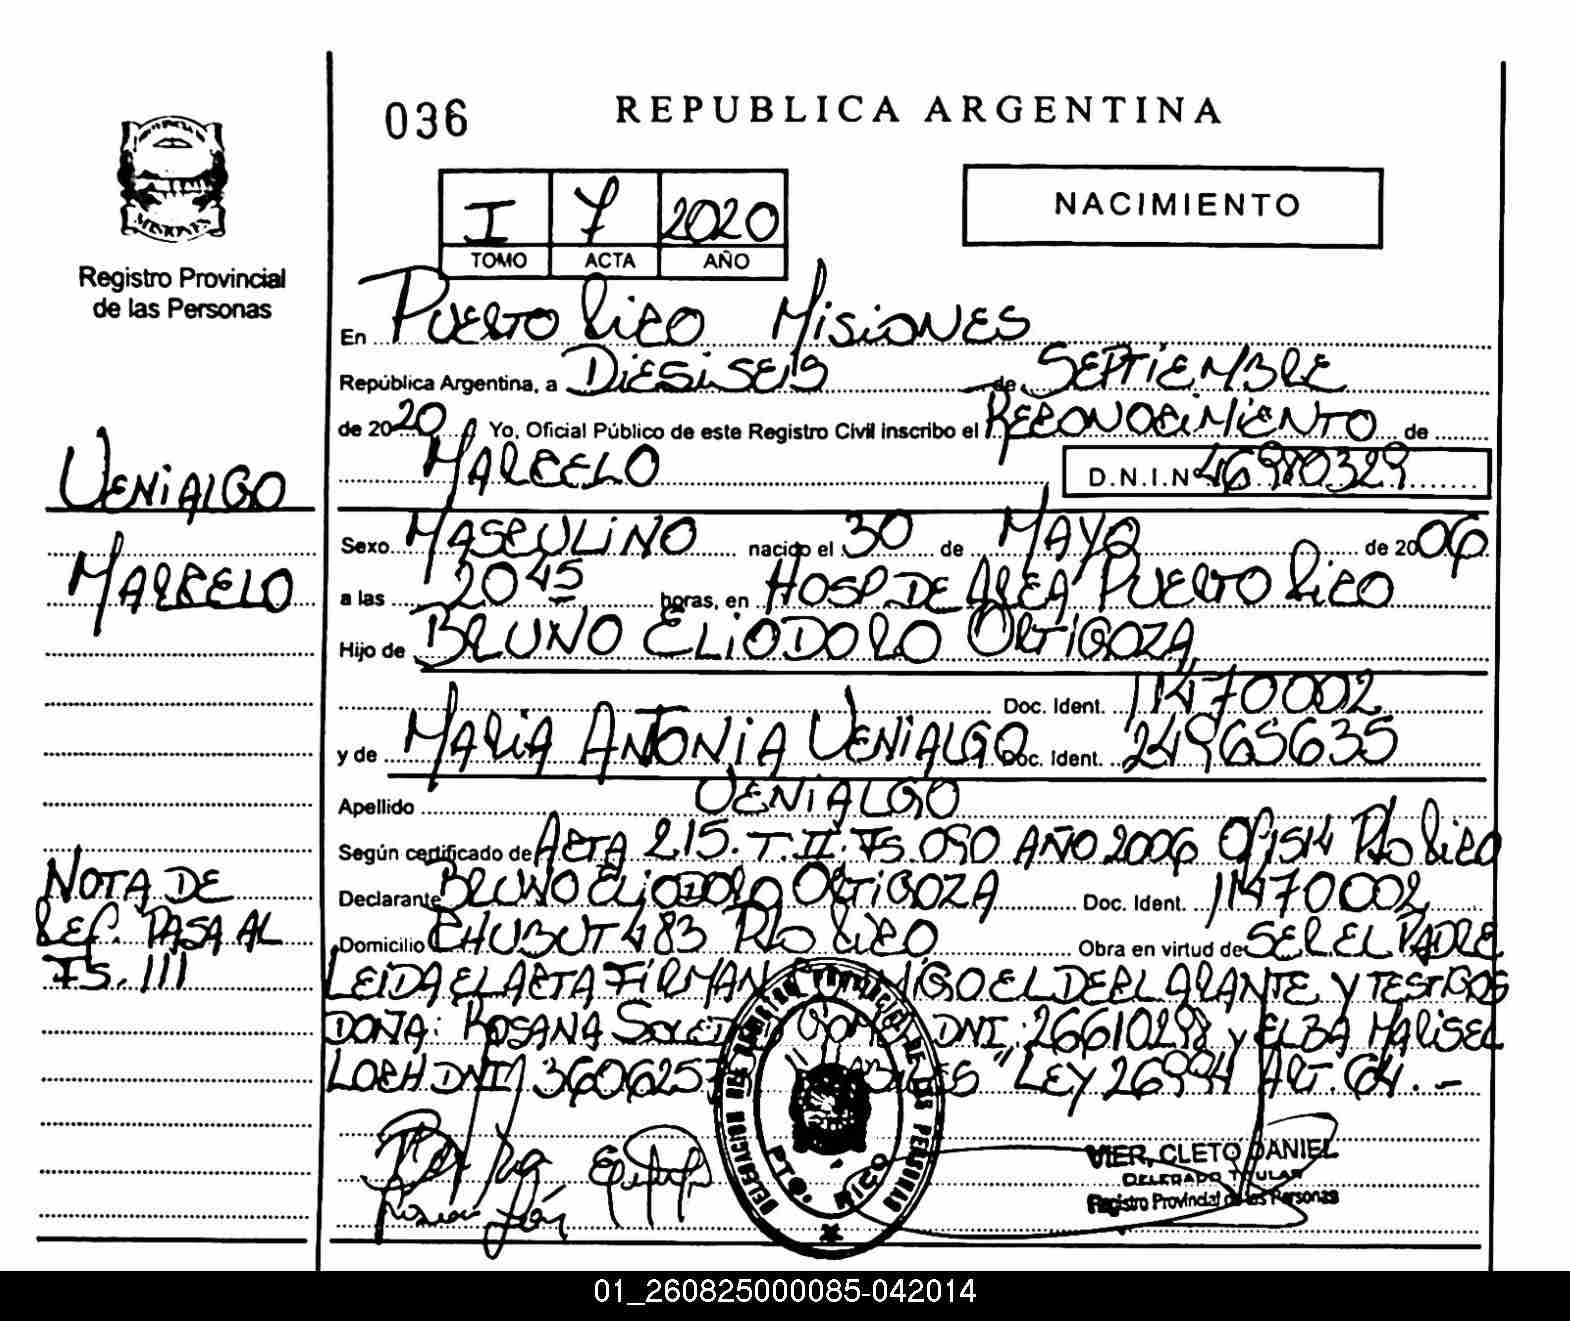 036
REPUBLICA ARGENTINA
NACIMIENTO
I 7 2020
TOMO ACTA AÑO
MISIONES
Registro Provincial
de las Personas
En PUERTO RICO MISIONES
República Argentina, a DIESISEIS de SEPTIEMBRE
de 2020 Yo, Oficial Público de este Registro Civil inscribo el RECONOCIMIENTO de
MARCELO D.N.I.N 46980329
VENIALGO
MARCELO
Sexo MASCULINO nacido el 30 de MAYO de 2006
a las 20 45 horas, en HOSP. DE AREA PUERTO RICO
Hijo de BRUNO ELIODORO ORTIGOZA
Doc. Ident. 11470002
y de MARIA ANTONIA VENIALGO Doc. Ident. 24965635
Apellido VENIALGO
Según certificado de ACTA 215. T. II. FS. 090 AÑO 2006 PTO RICO
Declarante BRUNO ELIODORO ORTIGOZA Doc. Ident. 11470002
Domicilio CHUBUT 483 PTO RICO Obra en virtud de SER EL PADRE
NOTA DE
REF. PASA AL
FS. 111
LEIDA EL ACTA FIRMAN MIGO EL DECLARANTE Y TESTIGOS
DOÑA: ROSANA DNI: 26610298 Y ELBA MARISEL
DNI "LEY 26994 ART. 64.-
DELEGACION DEL REGISTRO PROVINCIAL DE LAS PERSONAS
PTO. RICO
VIER, CLETO DANIEL
DELEGADO TITULAR
Registro Provincial de las Personas
01_260825000085-042014